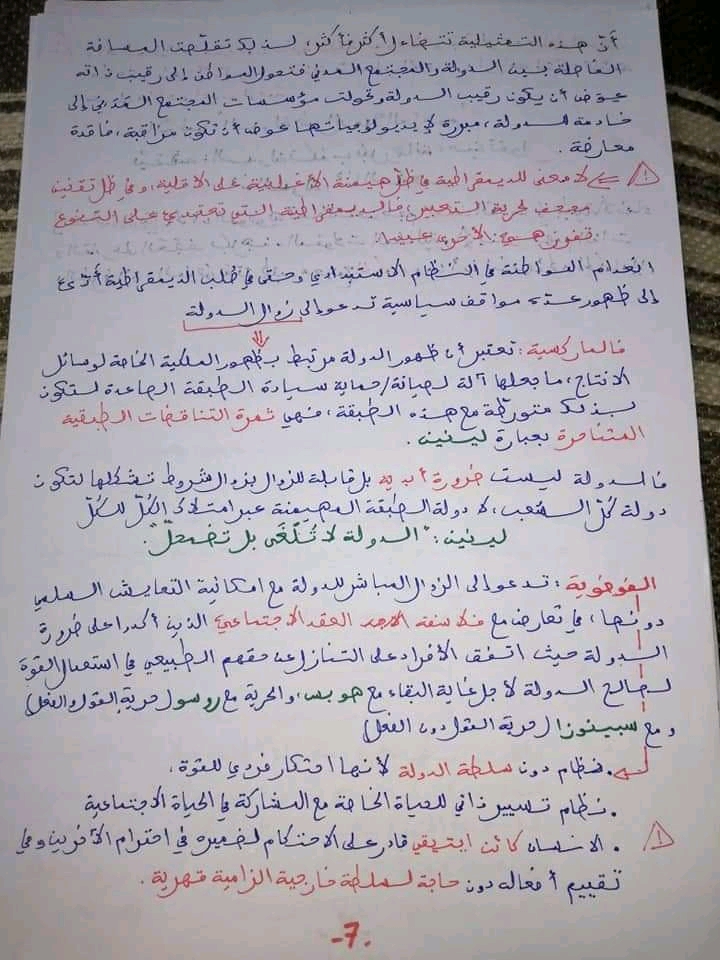 أنّ هذه التمثيلية تتضاءل أكثر فأكثر، لذلك تقلّصت المسافة
الفاصلة بين الدولة والمجتمع المدني فتحول المواطن إلى رقيب ذاته
عوض أن يكون رقيب الدولة وتحولت مؤسسات المجتمع المدني إلى
خادمة للدولة، مبررة لإيديولوجياتها عوض أن تكون مراقبة، فاقدة
معارضة.
⚠ ⇐ لا معنى للديمقراطية في ظلّ هيمنة الأغلبية على الأقلية، وفي ظل تقنين
مجحف لحرية التعبير، فالديمقراطية التي تعتدي على التنوع
تقوض هي الأخرى
انعدام المواطنة في النظام الاستبدادي وحتى في ظلّ الديمقراطية أدّى
إلى ظهور عدّة مواقف سياسية تدعو إلى زوال الدولة
فالماركسية: تعتبر أن ظهور الدولة مرتبط بظهور الملكية الخاصة لوسائل
الانتاج، ما جعلها آلة لصيانة/حماية سيادة الطبقة الصاعدة لتكون
بذلك متورطة مع هذه الطبقة، فهي ثمرة التناقضات الطبقية
المتنافرة بعبارة لينين.
فالدولة ليست ضرورة أبدية بل قابلة للزوال بزوال شروط تشكلها لتكون
دولة كلّ الشعب، لا دولة الطبقة المهيمنة عبر امتلاك الكلّ للكلّ
لينين: "الدولة لا تُلغَى بل تضمحلّ".
الفوضوية: تدعو إلى الزوال المباشر للدولة مع امكانية التعايش السلمي
دونها، في تعارض مع فلاسفة العقد الاجتماعي الذين أكدوا على ضرورة
الدولة حيث اتفق الأفراد على التنازل عن حقهم الطبيعي في استعمال القوة
لصالح الدولة لأجل غاية البقاء مع هوبس، والحرية مع روسو (حرية القول والفعل)
ومع سبينوزا (حرية القول دون الفعل)
. نظام دون سلطة الدولة لأنها احتكار فردي للقوة،
. نظام تسيير ذاتي للحياة الخاصة مع المشاركة في الحياة الاجتماعية
⚠ . الانسان كائن ايتيقي قادر على الاحتكام لضميره في احترام الآخرين وفي
تقييم أفعاله دون حاجة لسلطة خارجية الزامية قهرية.
-7.